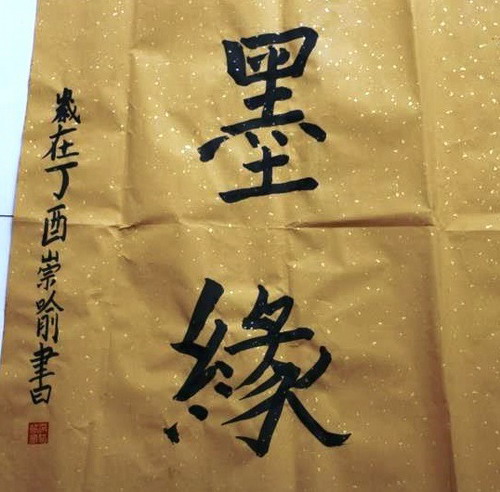 墨緣
歲在丁酉崇喻書